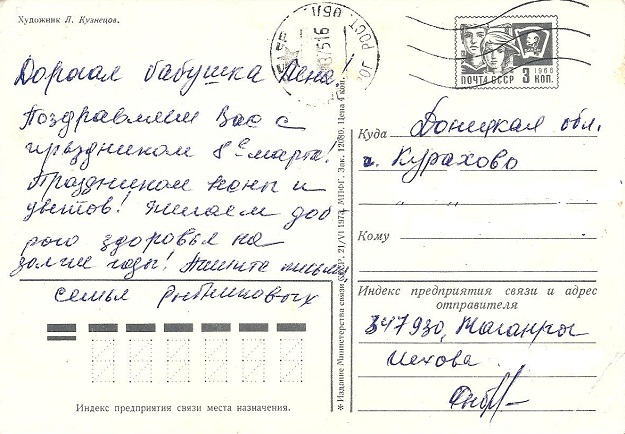 Художник Л. Кузнецов.
Дорогая бабушка Лена!
Поздравляем Вас с
праздником 8е марта!
Праздником и
цветов! Желаем доб
рого здоровья на
долгие годы! Пишите письма,
семья Рыбниковых
Индекс предприятия связи места назначения.
* Издание Министерства связи СССР. 21/VI 1973. МПФГ. Зак. 12080. Цена 4 коп.
РОСТ ОБЛ
ПОЧТА СССР 3 КОП.
1966
Куда Донецкая обл.
г. Курахово
Кому
Индекс предприятия связи и адрес
отправителя
347930, Таганрог
Чехова